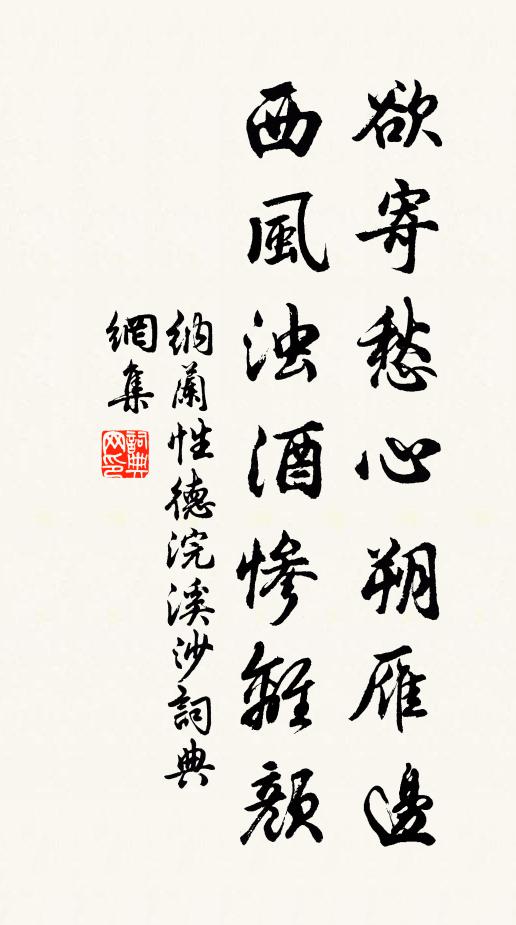 欲寄愁心朔雁邊
西風浊酒惨離顏
納蘭性德浣溪沙詞典
網集
詞典网印